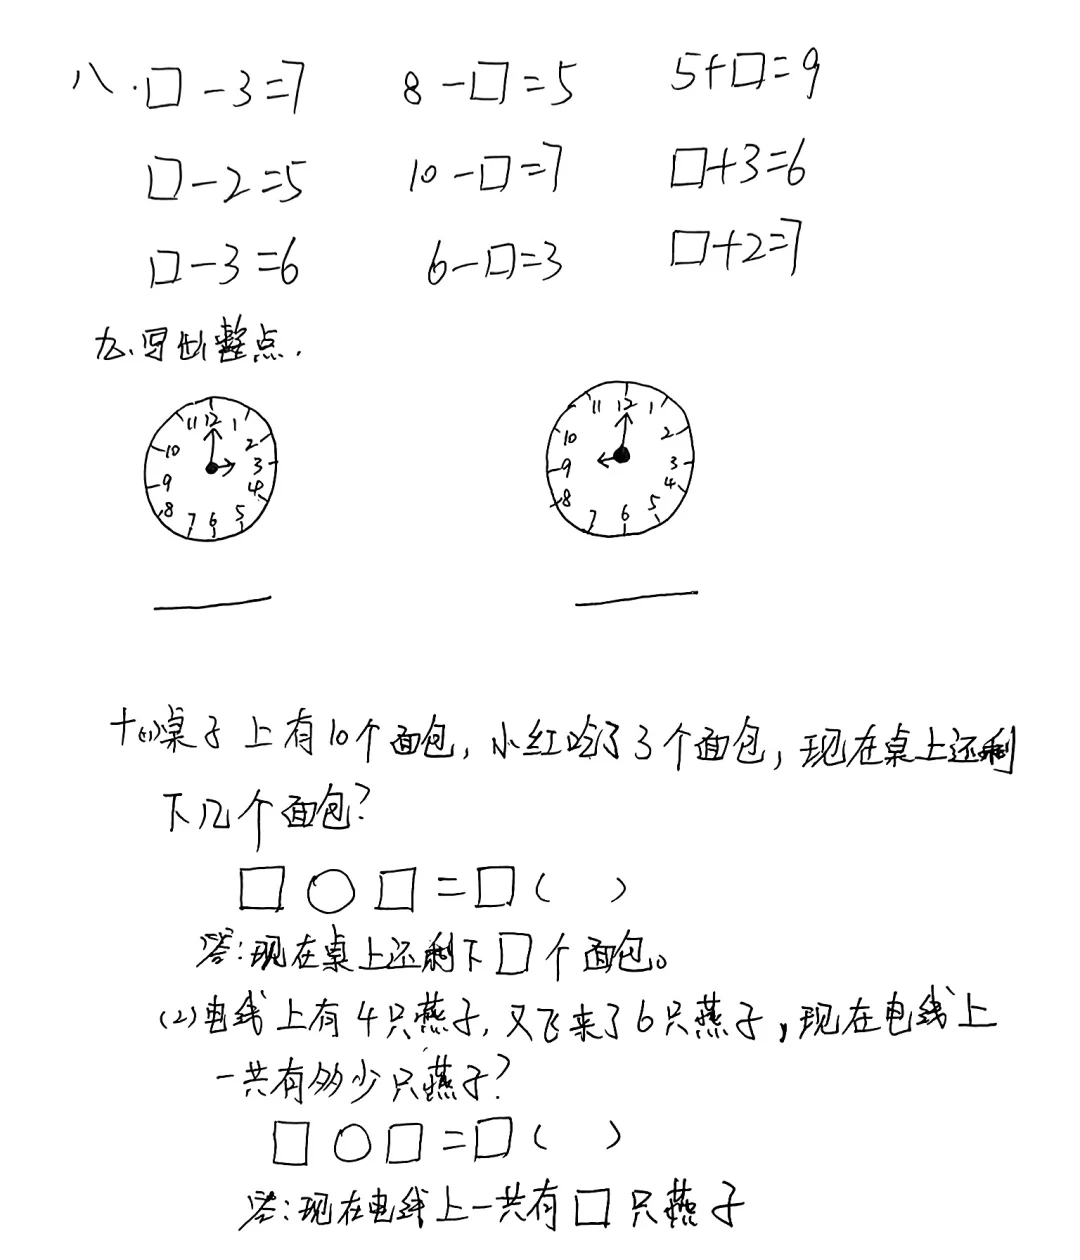 八.□-3=7 8-□=5 5+□=9
□-2=5 10-□=7 □+3=6
□-3=6 6-□=3 □+2=7
九、写出整点.
11 12 1 11 12 1
10 2 10 2
9 3 9 3
8 4 8 4
7 6 5 7 6 5
十(1)桌子上有10个面包,小红吃了3个面包,现在桌上还剩
下几个面包?
□○□=□( )
答:现在桌上还剩下□个面包。
(2)电线上有4只燕子,又飞来了6只燕子,现在电线上
一共有多少只燕子?
□○□=□( )
答:现在电线上一共有□只燕子